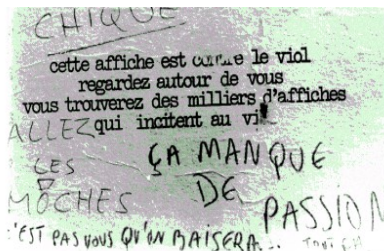 CHIQUE
cette affiche est contre le viol
regardez autour de vous
vous trouverez des milliers d'affiches
qui incitent au viol
ALLEZ
LES
MOCHES
ÇA MANQUE
DE
PASSION
C'EST PAS VOUS QU'ON BAISERA...